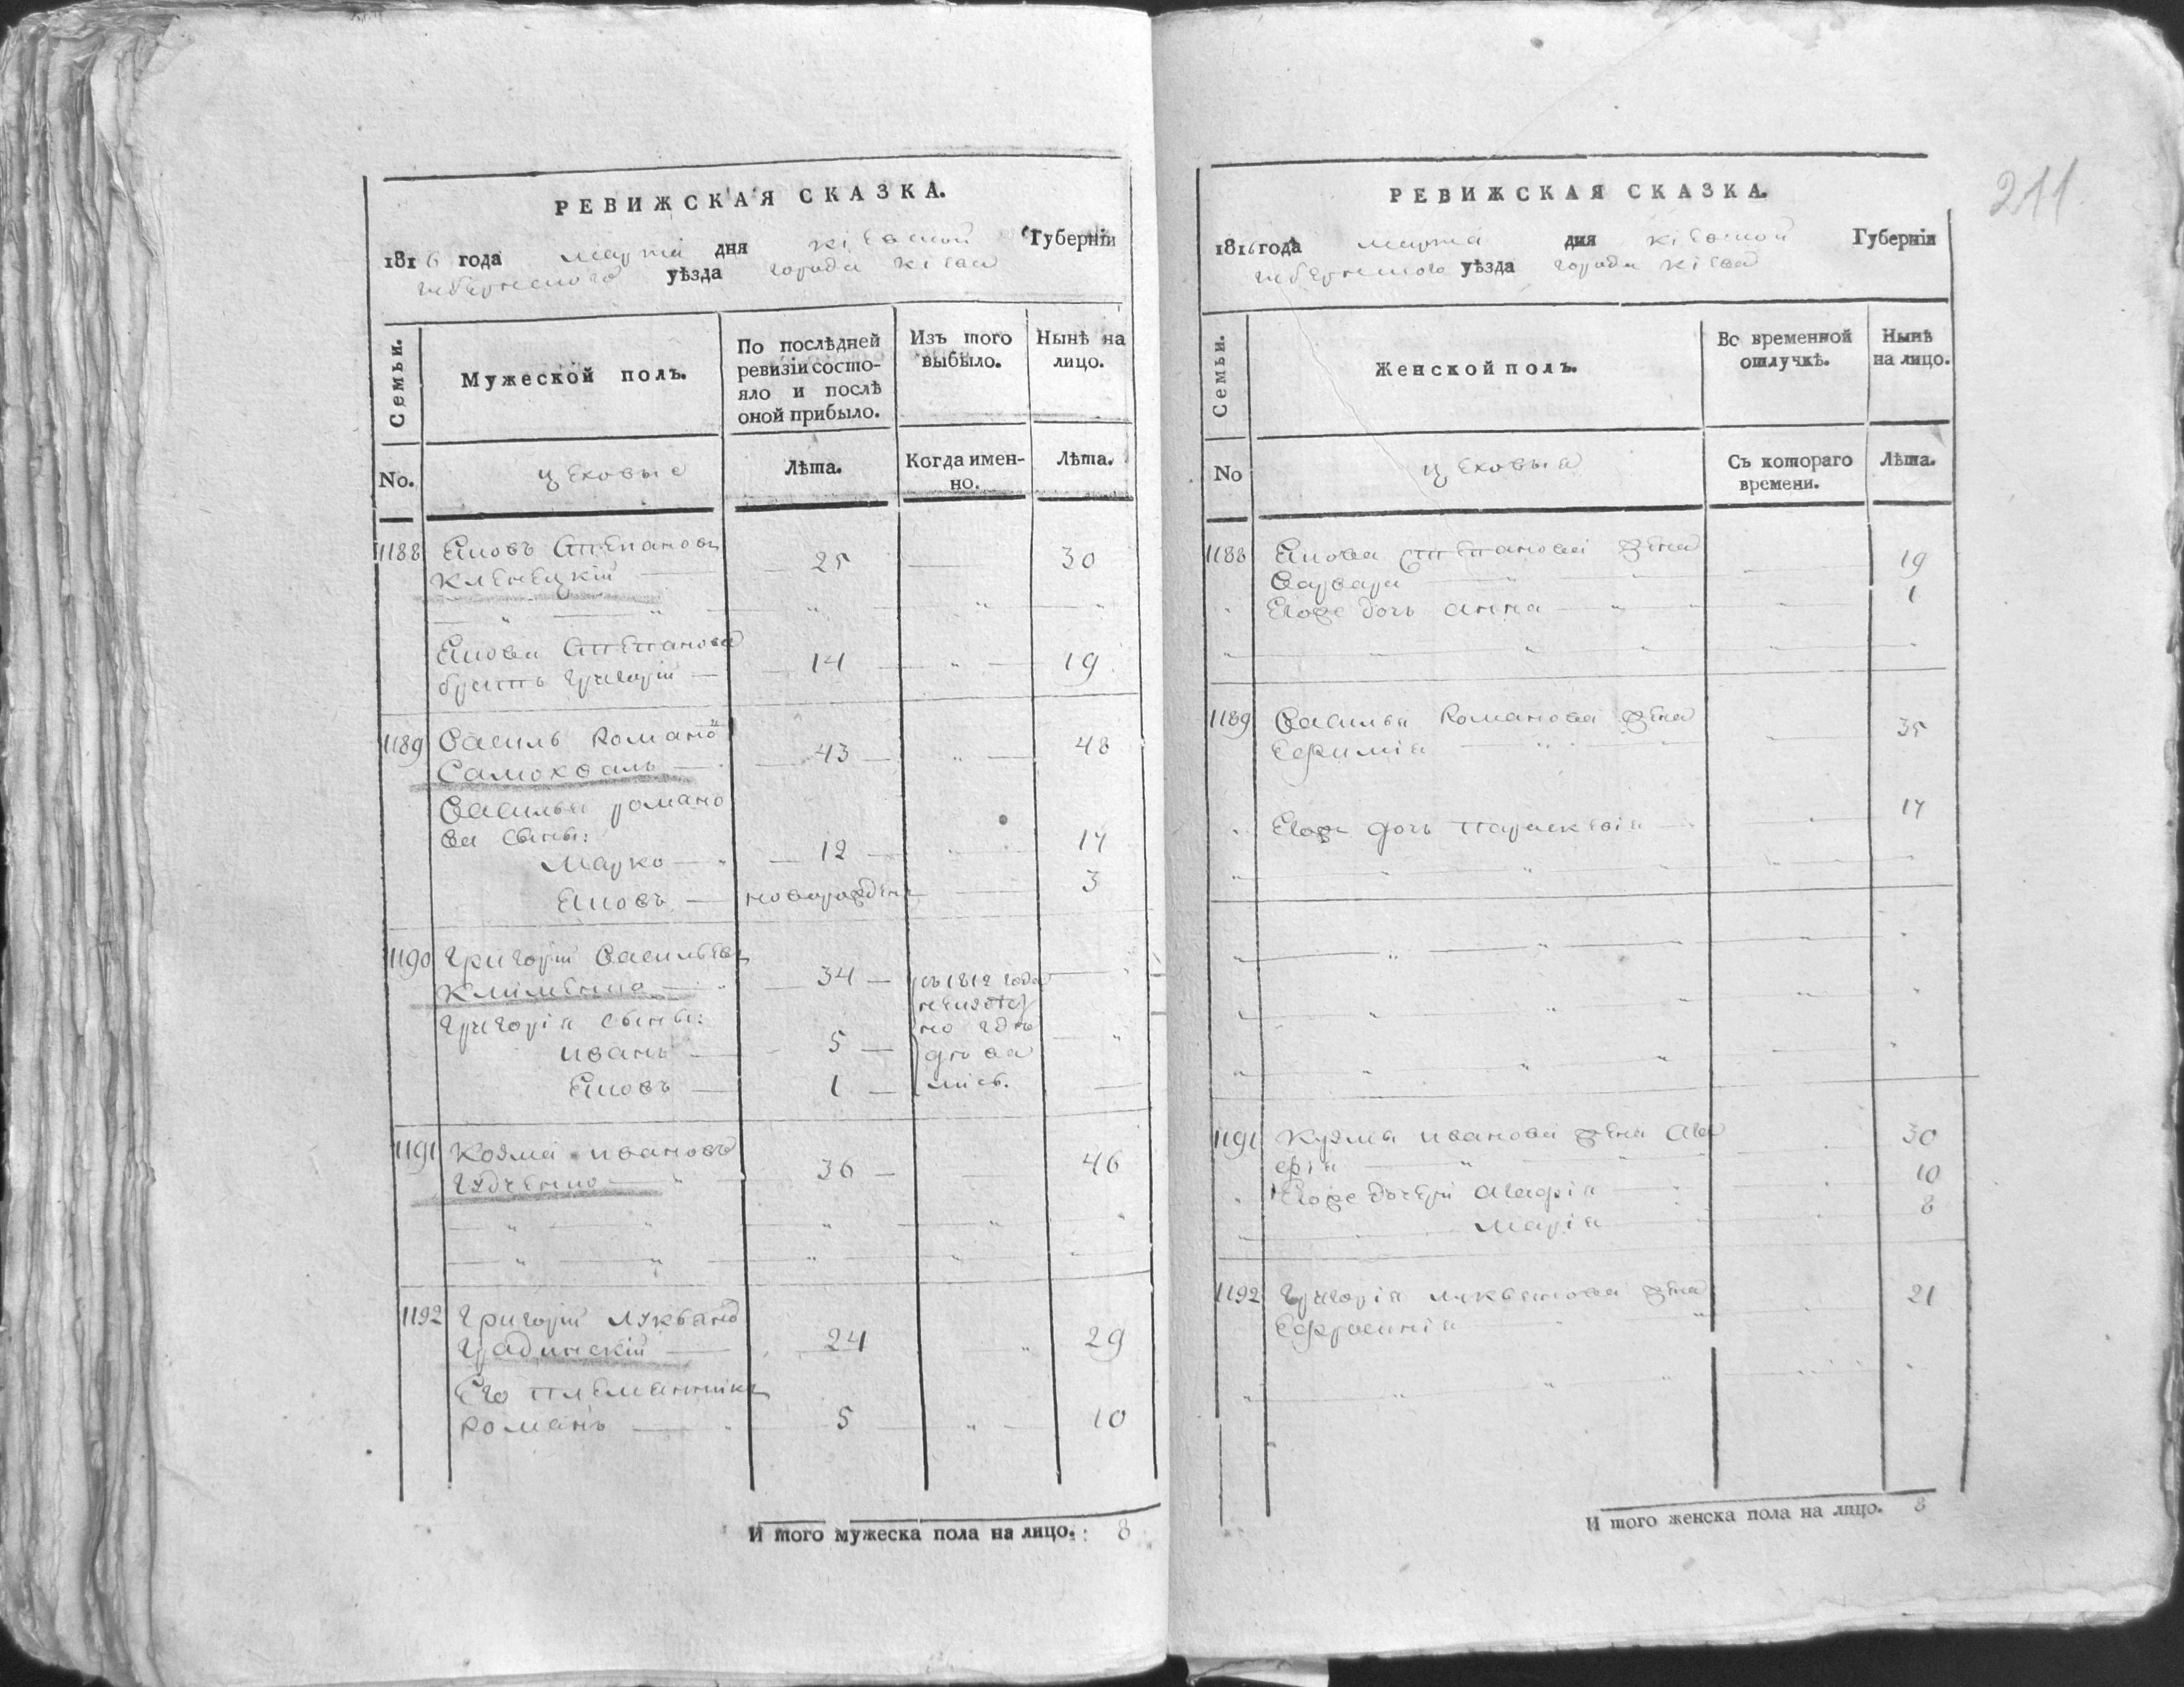 РЕВИЖСКАЯ СКАЗКА.
1816 года марта дня кіевской Губерніи
уѣзда города кіева
Семьи.
Мужеской полъ.
По послѣдней
ревизіи состо-
яло и послѣ
оной прибыло.
Изъ того
выбыло.
Нынѣ на
лицо.
No.
цеховые
Лѣта.
Когда имен-
но.
Лѣта.
1188 Яковъ Степановъ
Кленецкій 25 30
Якова Степанова
братъ григорій 14 19
1189 Василь Романо
Самохваль 43 48
Василья романо
ва сыны:
Марко 12 17
Яковъ новорожденъ 3
1190 Григорій Васильевъ
Клименко 34 съ 1812 года
Григорія сыны:
иванъ 5
Яковъ 1
1191 Козма ивановъ
36 46
1192 Григорій
Градинскій 24 29
Его племянникъ
Романъ 5 10
И того мужеска пола на лицо. 8
211
РЕВИЖСКАЯ СКАЗКА.
1816 года марта дня кіевской Губерніи
уѣзда города кіева
Семьи.
Женской полъ.
Во временной
отлучкѣ.
Нынѣ
на лицо.
No
цеховыя
Съ котораго
времени.
Лѣта.
1188 Якова Степанова жена
Варвара 19
Егоже дочь анна 1
1189 Василья Романова жена
Ефимія 35
Егоже дочь параскевія 17
1191 Кузмы иванова жена Ага
фія 30
Егоже дочери Агафія 10
Марія 8
1192 Григорія жена
Ефросинія 21
И того женска пола на лицо. 8